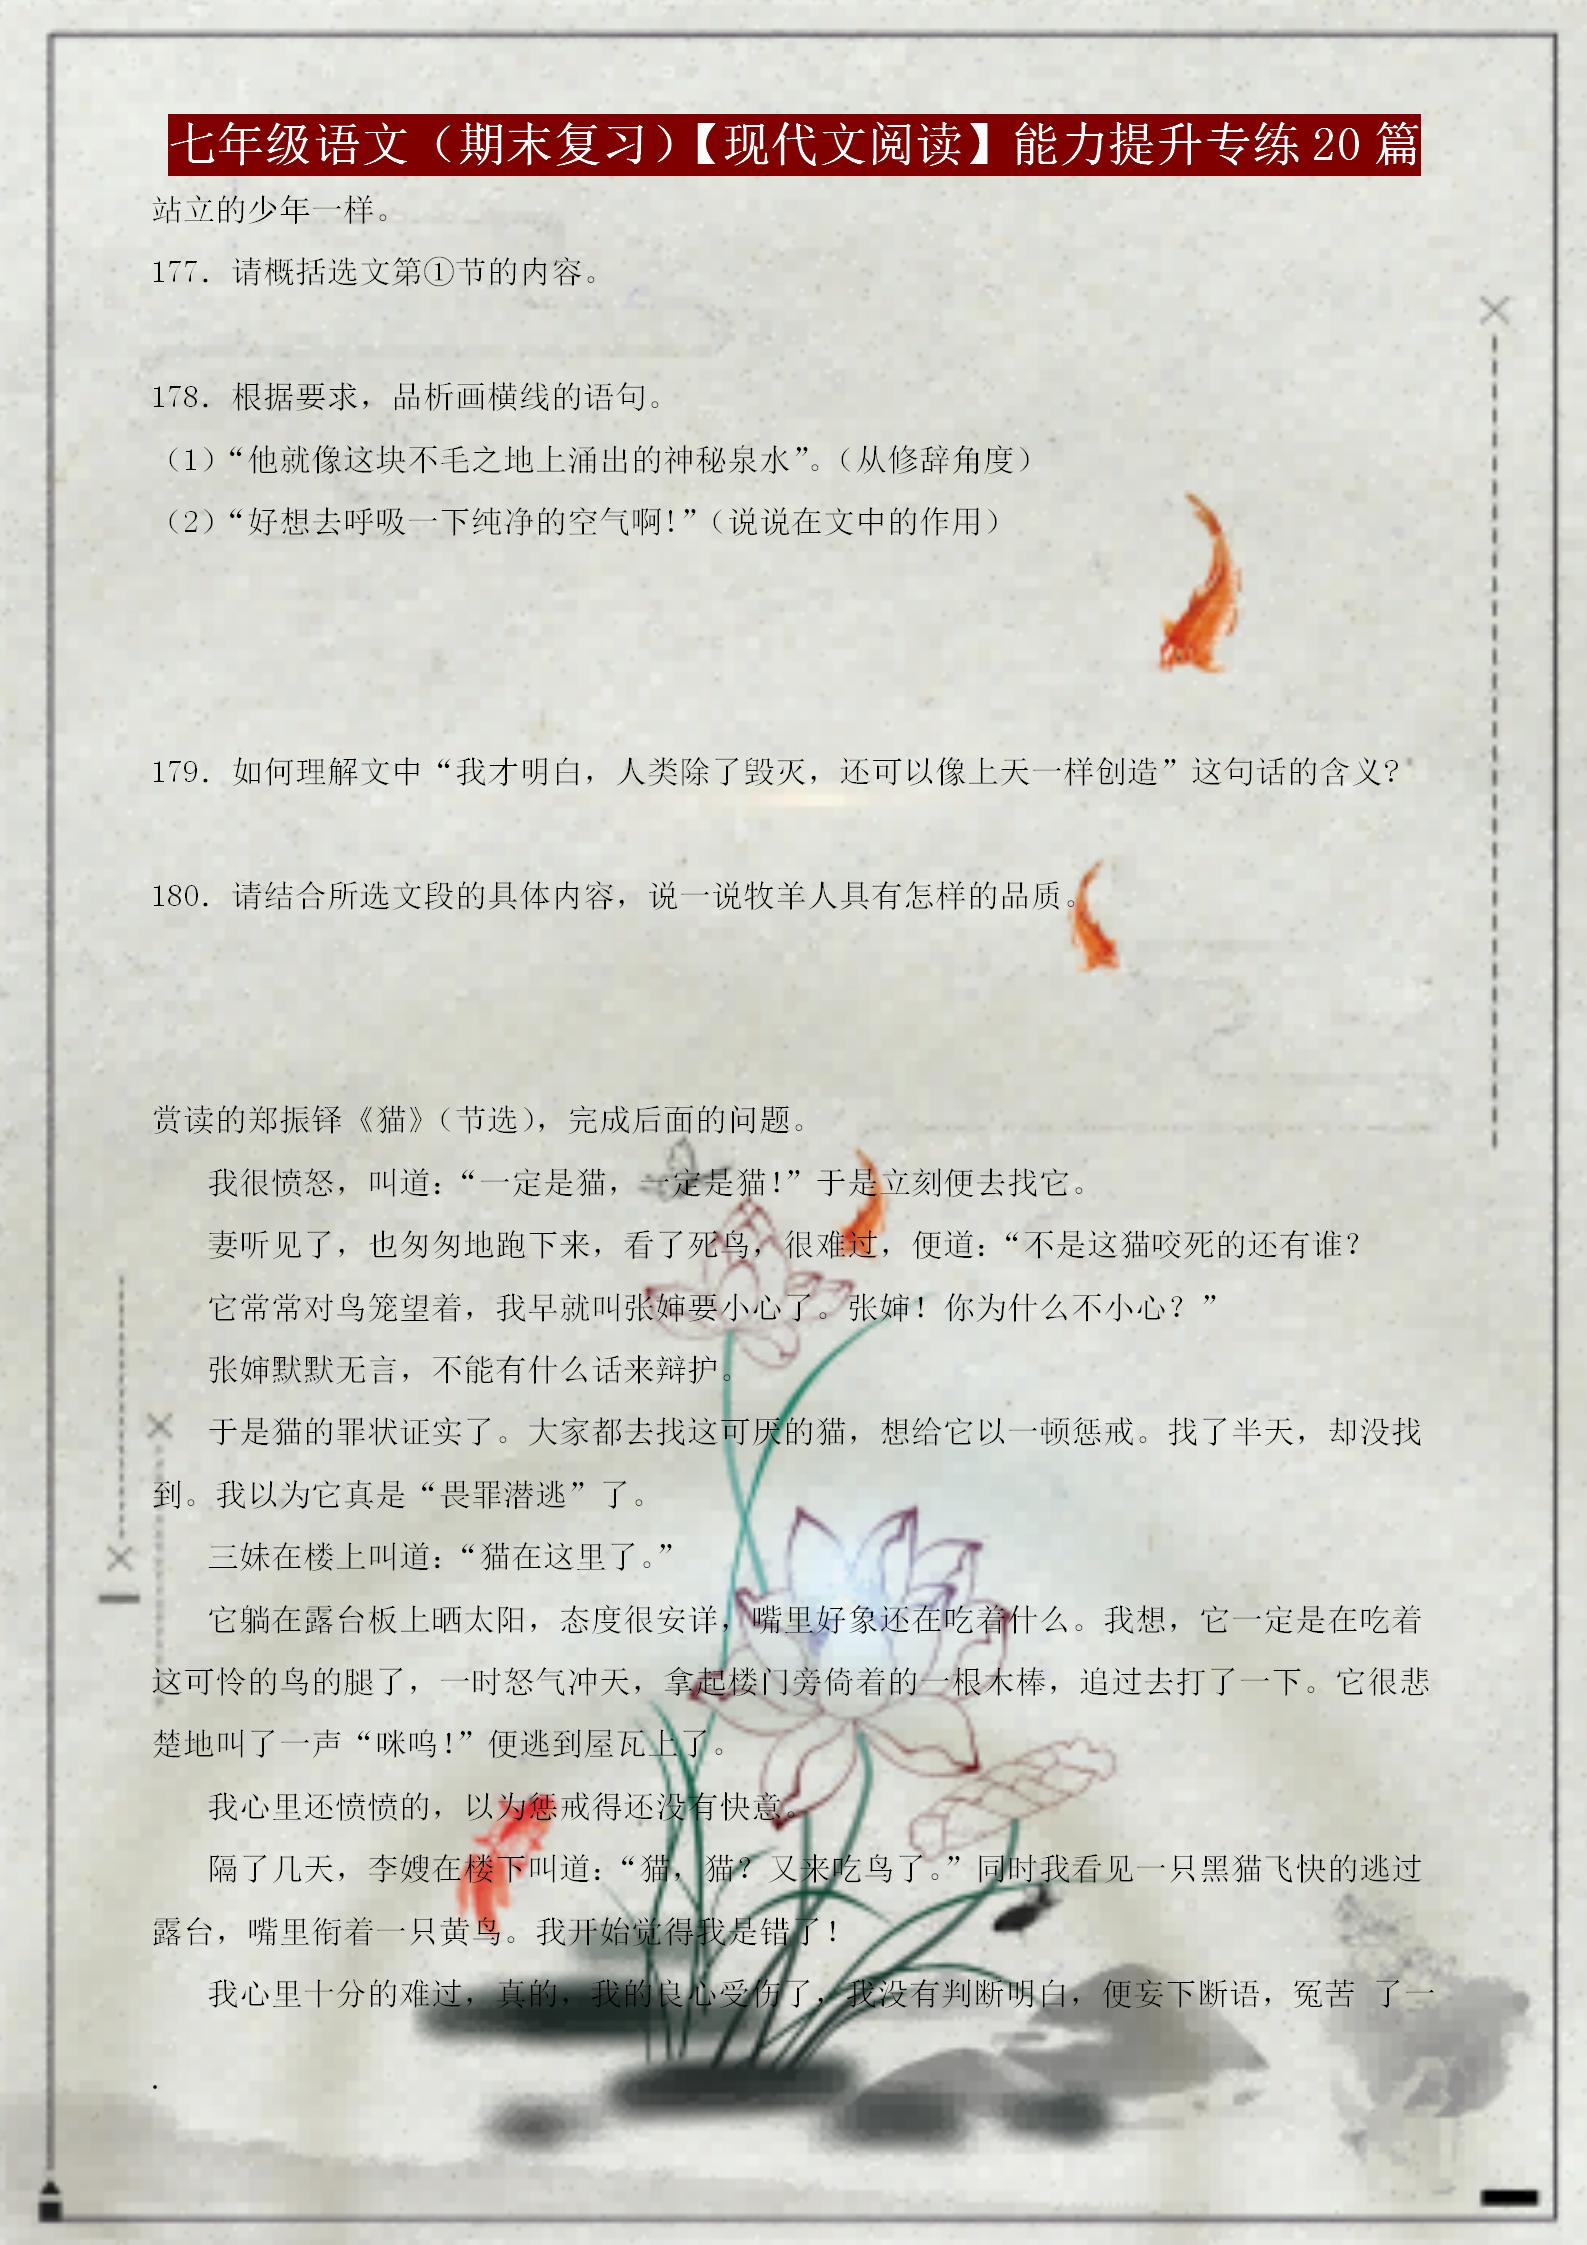 七年级语文（期末复习）【现代文阅读】能力提升专练20篇
站立的少年一样。
177．请概括选文第①节的内容。
178．根据要求，品析画横线的语句。
（1）“他就像这块不毛之地上涌出的神秘泉水”。（从修辞角度）
（2）“好想去呼吸一下纯净的空气啊！”（说说在文中的作用）
179．如何理解文中“我才明白，人类除了毁灭，还可以像上天一样创造”这句话的含义？
180．请结合所选文段的具体内容，说一说牧羊人具有怎样的品质。
赏读的郑振铎《猫》（节选），完成后面的问题。
我很愤怒，叫道：“一定是猫，一定是猫！”于是立刻便去找它。
妻听见了，也匆匆地跑下来，看了死鸟，很难过，便道：“不是这猫咬死的还有谁？
它常常对鸟笼望着，我早就叫张婶要小心了。张婶！你为什么不小心？”
张婶默默无言，不能有什么话来辩护。
于是猫的罪状证实了。大家都去找这可厌的猫，想给它以一顿惩戒。找了半天，却没找
到。我以为它真是“畏罪潜逃”了。
三妹在楼上叫道：“猫在这里了。”
它躺在露台板上晒太阳，态度很安详，嘴里好象还在吃着什么。我想，它一定是在吃着
这可怜的鸟的腿了，一时怒气冲天，拿起楼门旁倚着的一根木棒，追过去打了一下。它很悲
楚地叫了一声“咪呜！”便逃到屋瓦上了。
我心里还愤愤的，以为惩戒得还没有快意。
隔了几天，李嫂在楼下叫道：“猫，猫？又来吃鸟了。”同时我看见一只黑猫飞快的逃过
露台，嘴里衔着一只黄鸟。我开始觉得我是错了！
我心里十分的难过，真的，我的良心受伤了，我没有判断明白，便妄下断语，冤苦 了一
.